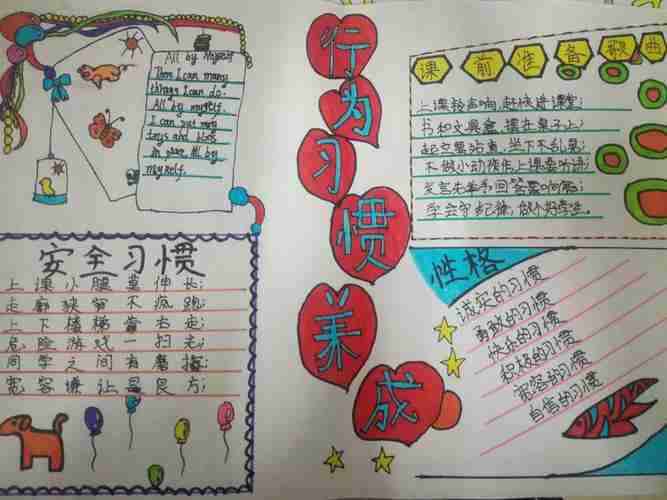 All by Myself
There I can many
things I can do.
All by myself.
I can put my
toys and
in place All by
myself.
行为习惯养成
课前准备歌曲
上课铃声响,赶快进课堂;
书和文具盒,摆在桌子上;
起立要站直,坐下不乱晃;
不做小动作,上课要听讲;
发言先举手,回答要响亮;
学会守纪律,做个好学生。
安全习惯
上课小腿莫伸长;
走廊狭窄不疯跑;
上下楼梯靠右走;
危险游戏一扫光;
同学之间有磨擦;
宽容谦让是良方;
性格
诚实的习惯
勇敢的习惯
快乐的习惯
积极的习惯
宽容的习惯
自信的习惯